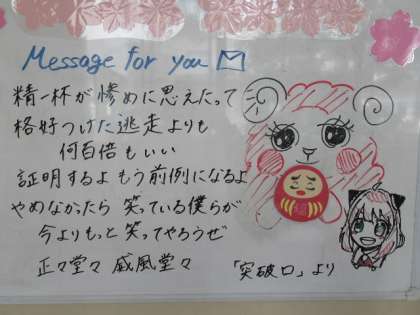 Message for you
精一杯が惨めに思えたって
格好つけた逃走よりも
何百倍もいい
証明するよ もう前例になるよ
やめなかったら 笑っている僕らが
今よりもっと笑ってやろうぜ
正々堂々 威風堂々
「突破口」より